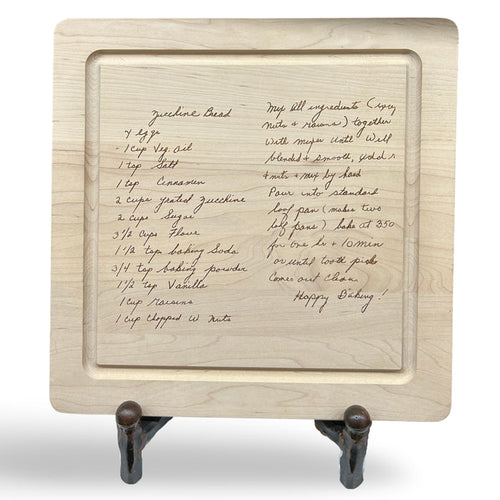 Zucchine Bread
4 eggs
- 1 cup Veg. Oil
1 tsp Salt
1 tsp Cinnamon
2 cups grated Zucchine
2 cups Sugar
3 1/2 cups Flour
1 1/2 tsp baking Soda
3/4 tsp baking powder
1 1/2 tsp Vanilla
1 cup raisins
1 cup Chopped W Nuts
Mix All ingredients (
nuts + raisins) together
With mixer Until Well
blended + smooth,
+ nuts + mix by hand
Pour into standard
loaf pan (makes two
loaf pans) bake at 350
for one hr + 10 min
or until tooth picks
Comes out Clean
Happy Baking!